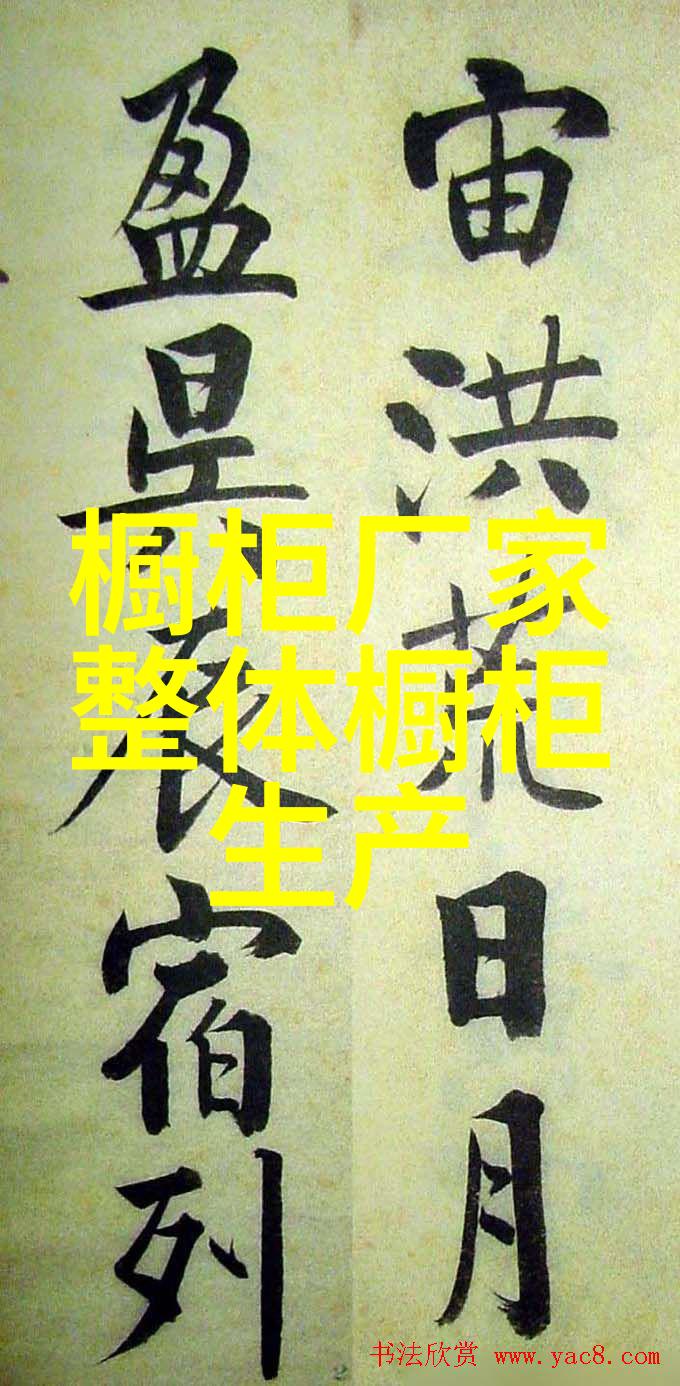 宙洪荒日月
盈昃辰宿列
橱柜厂家
整体橱柜
生产
2
书法欣赏 www.yac8.com